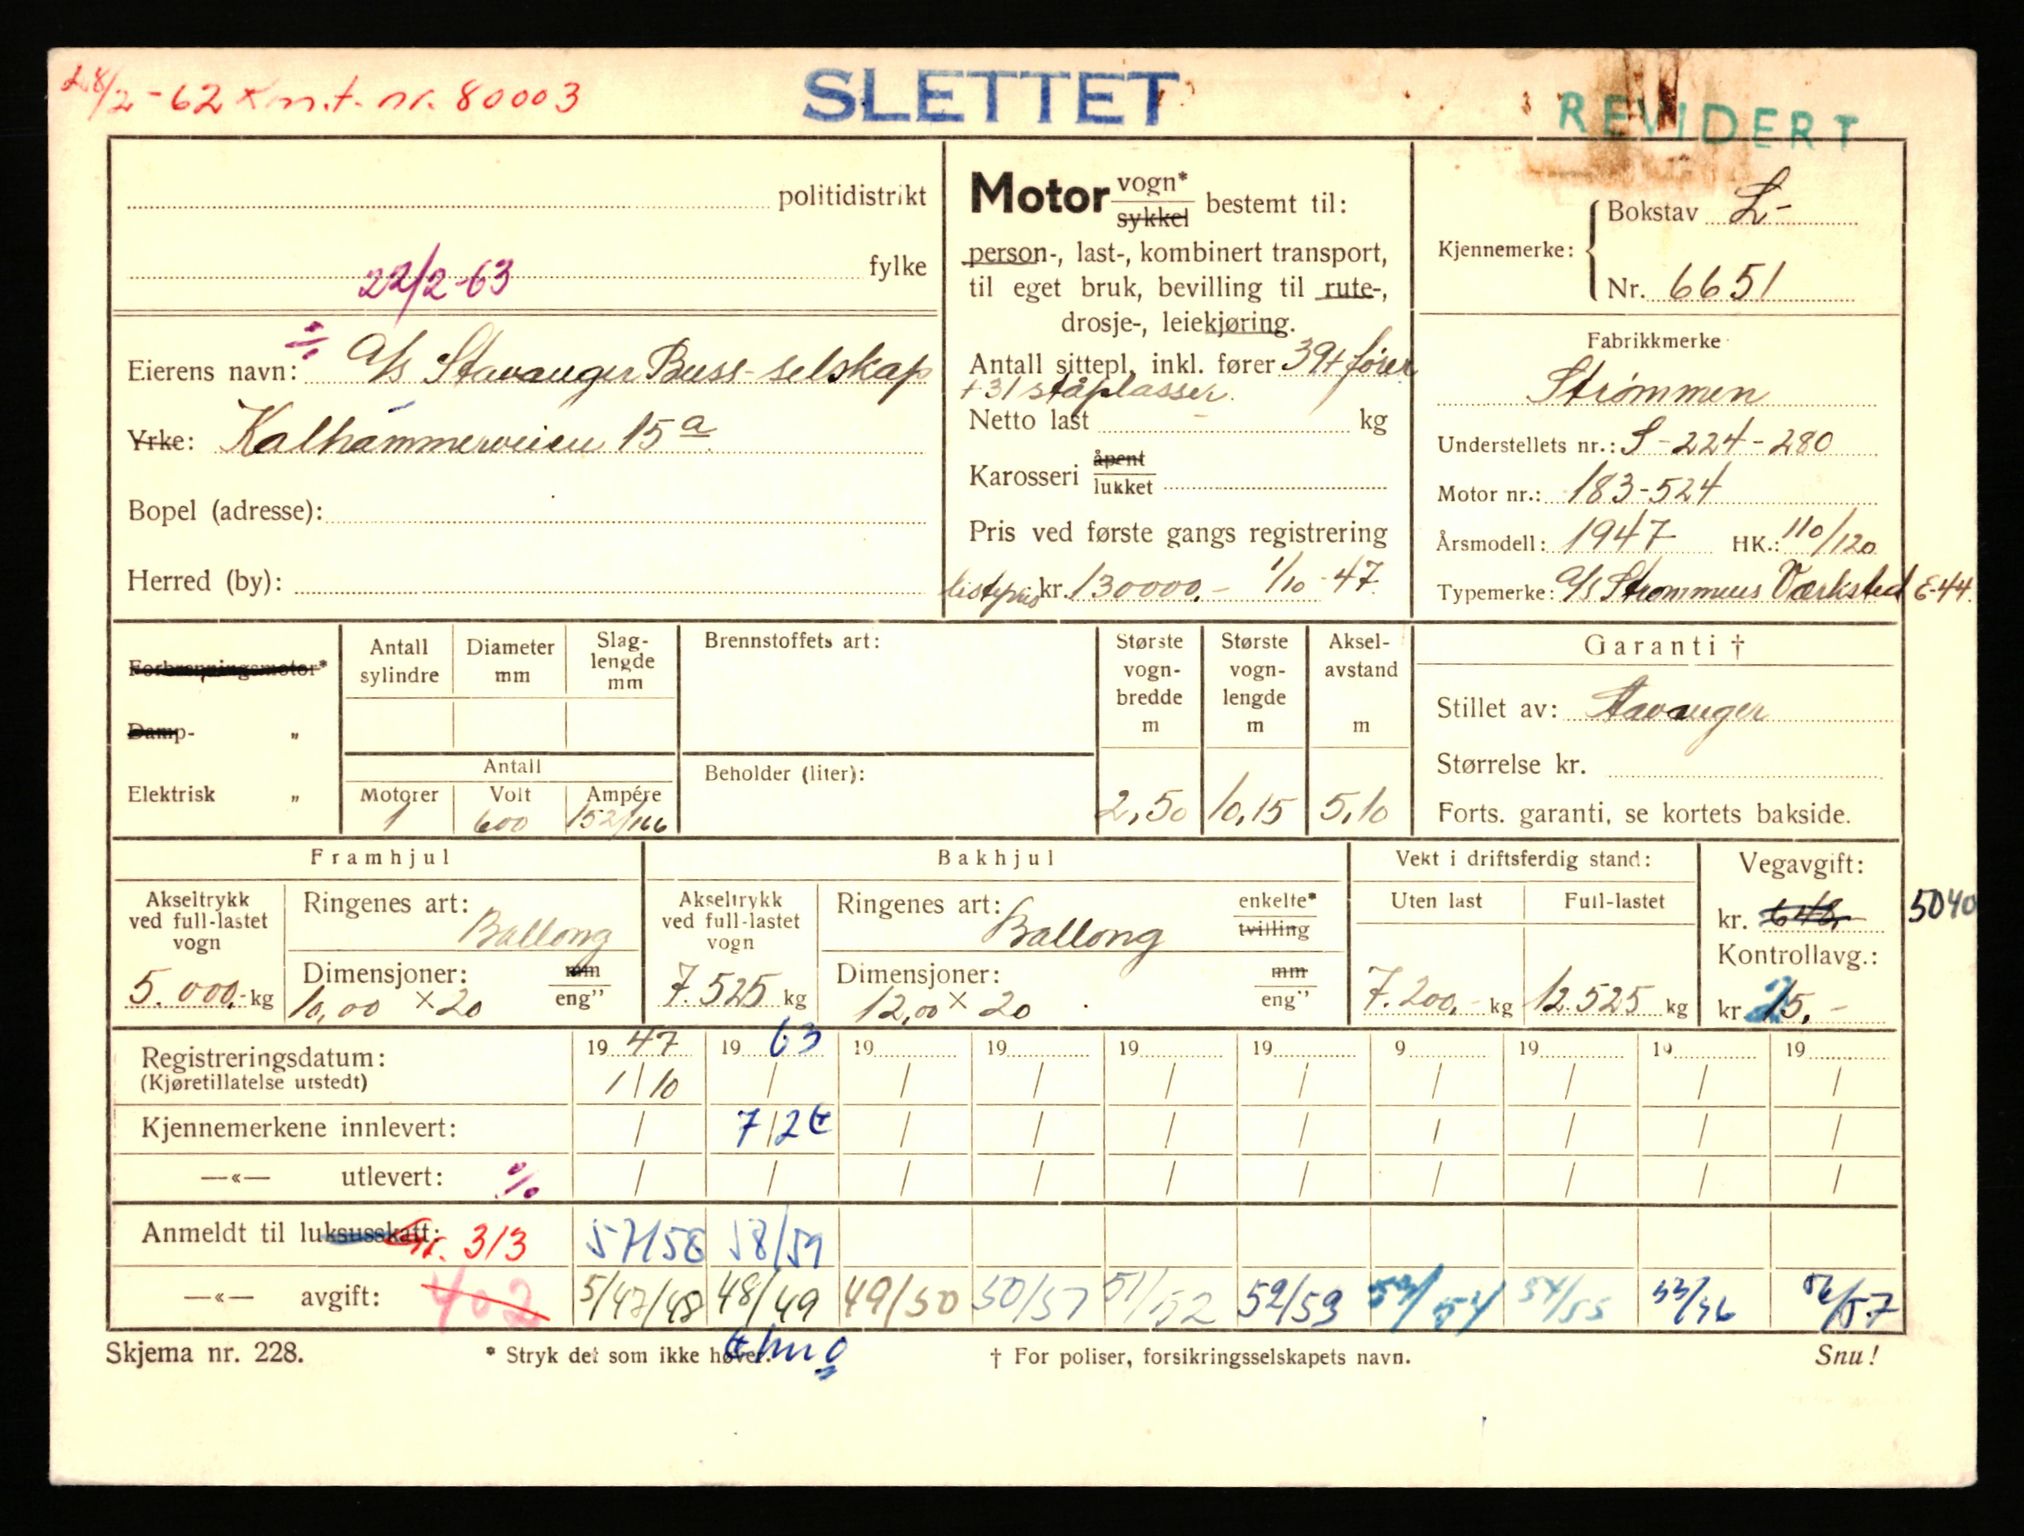 28/2-62 Km.t. nr. 80003
SLETTET
REVIDERT
politidistrikt
fylke
22/2-63
Eierens navn: A/s Stavanger Buss-selskap
Yrke: Kalhammerveien 15a
Bopel (adresse):
Herred (by):
Motor vogn* sykkel bestemt til:
person-, last-, kombinert transport,
til eget bruk, bevilling til rute-,
drosje-, leiekjøring.
Antall sittepl. inkl. fører 39+fører
+31 ståplasser.
Netto last - kg
Karosseri åpent lukket
Pris ved første gangs registrering
listepris kr. 130000.- 1/10-47.
Kjennemerke: Bokstav L-
Nr. 6651
Fabrikkmerke
Strømmen
Understellets nr.: S-224-280
Motor nr.: 183-524
Årsmodell: 1947 HK.: 110/120
Typemerke: A/S Strømmens Værksted E-44.
Forbrenningsmotor*
Damp- „
Elektrisk „
Antall sylindre
Diameter mm
Slag-lengde mm
Antall
Motorer Volt Ampére
1 600 152/166
Brennstoffets art:
Beholder (liter):
Største vogn-bredde m
2,50
Største vogn-lengde m
10,15
Aksel-avstand m
5,10
Garanti †
Stillet av: Stavanger
Størrelse kr.
Forts. garanti, se kortets bakside.
Framhjul
Akseltrykk ved full-lastet vogn
5.000.- kg
Ringenes art: Ballong
Dimensjoner: mm eng”
10,00 × 20
Bakhjul
Akseltrykk ved full-lastet vogn
7.525 kg
Ringenes art: Ballong enkelte* tvilling
Dimensjoner: mm eng”
12,00 × 20
Vekt i driftsferdig stand:
Uten last Full-lastet
7.200,- kg 12.525 kg
Vegavgift:
kr. 648,- 5040
Kontrollavg.:
kr. 15,-
Registreringsdatum: 19 47 19 63 19 19 19 19 9 19 19 19
(Kjøretillatelse utstedt) 1/10 / / / / / / / / /
Kjennemerkene innlevert: / 7/2 / / / / / / / /
—«— utlevert: / / / / / / / / / /
Anmeldt til luksusskatt: 313 57/58 58/59
—«— avgift: 402 5/47/48 48/49 49/50 50/51 51/52 52/53 53/54 54/55 55/56 56/57
Skjema nr. 228.
* Stryk det som ikke høver.
† For poliser, forsikringsselskapets navn.
Snu!